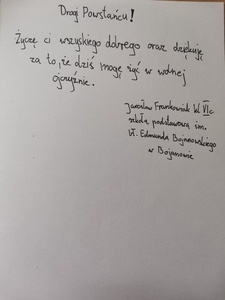 Drogi Powstańcu!
Życzę ci wszyskiego dobrego oraz dziękuję
za to, że dziś mogę żyć w wolnej
ojczyźnie.
Jarosław Frankowiak kl. VIc
szkoła podstawowa im.
bł. Edmunda Bojanowskiego
w Bojanowie